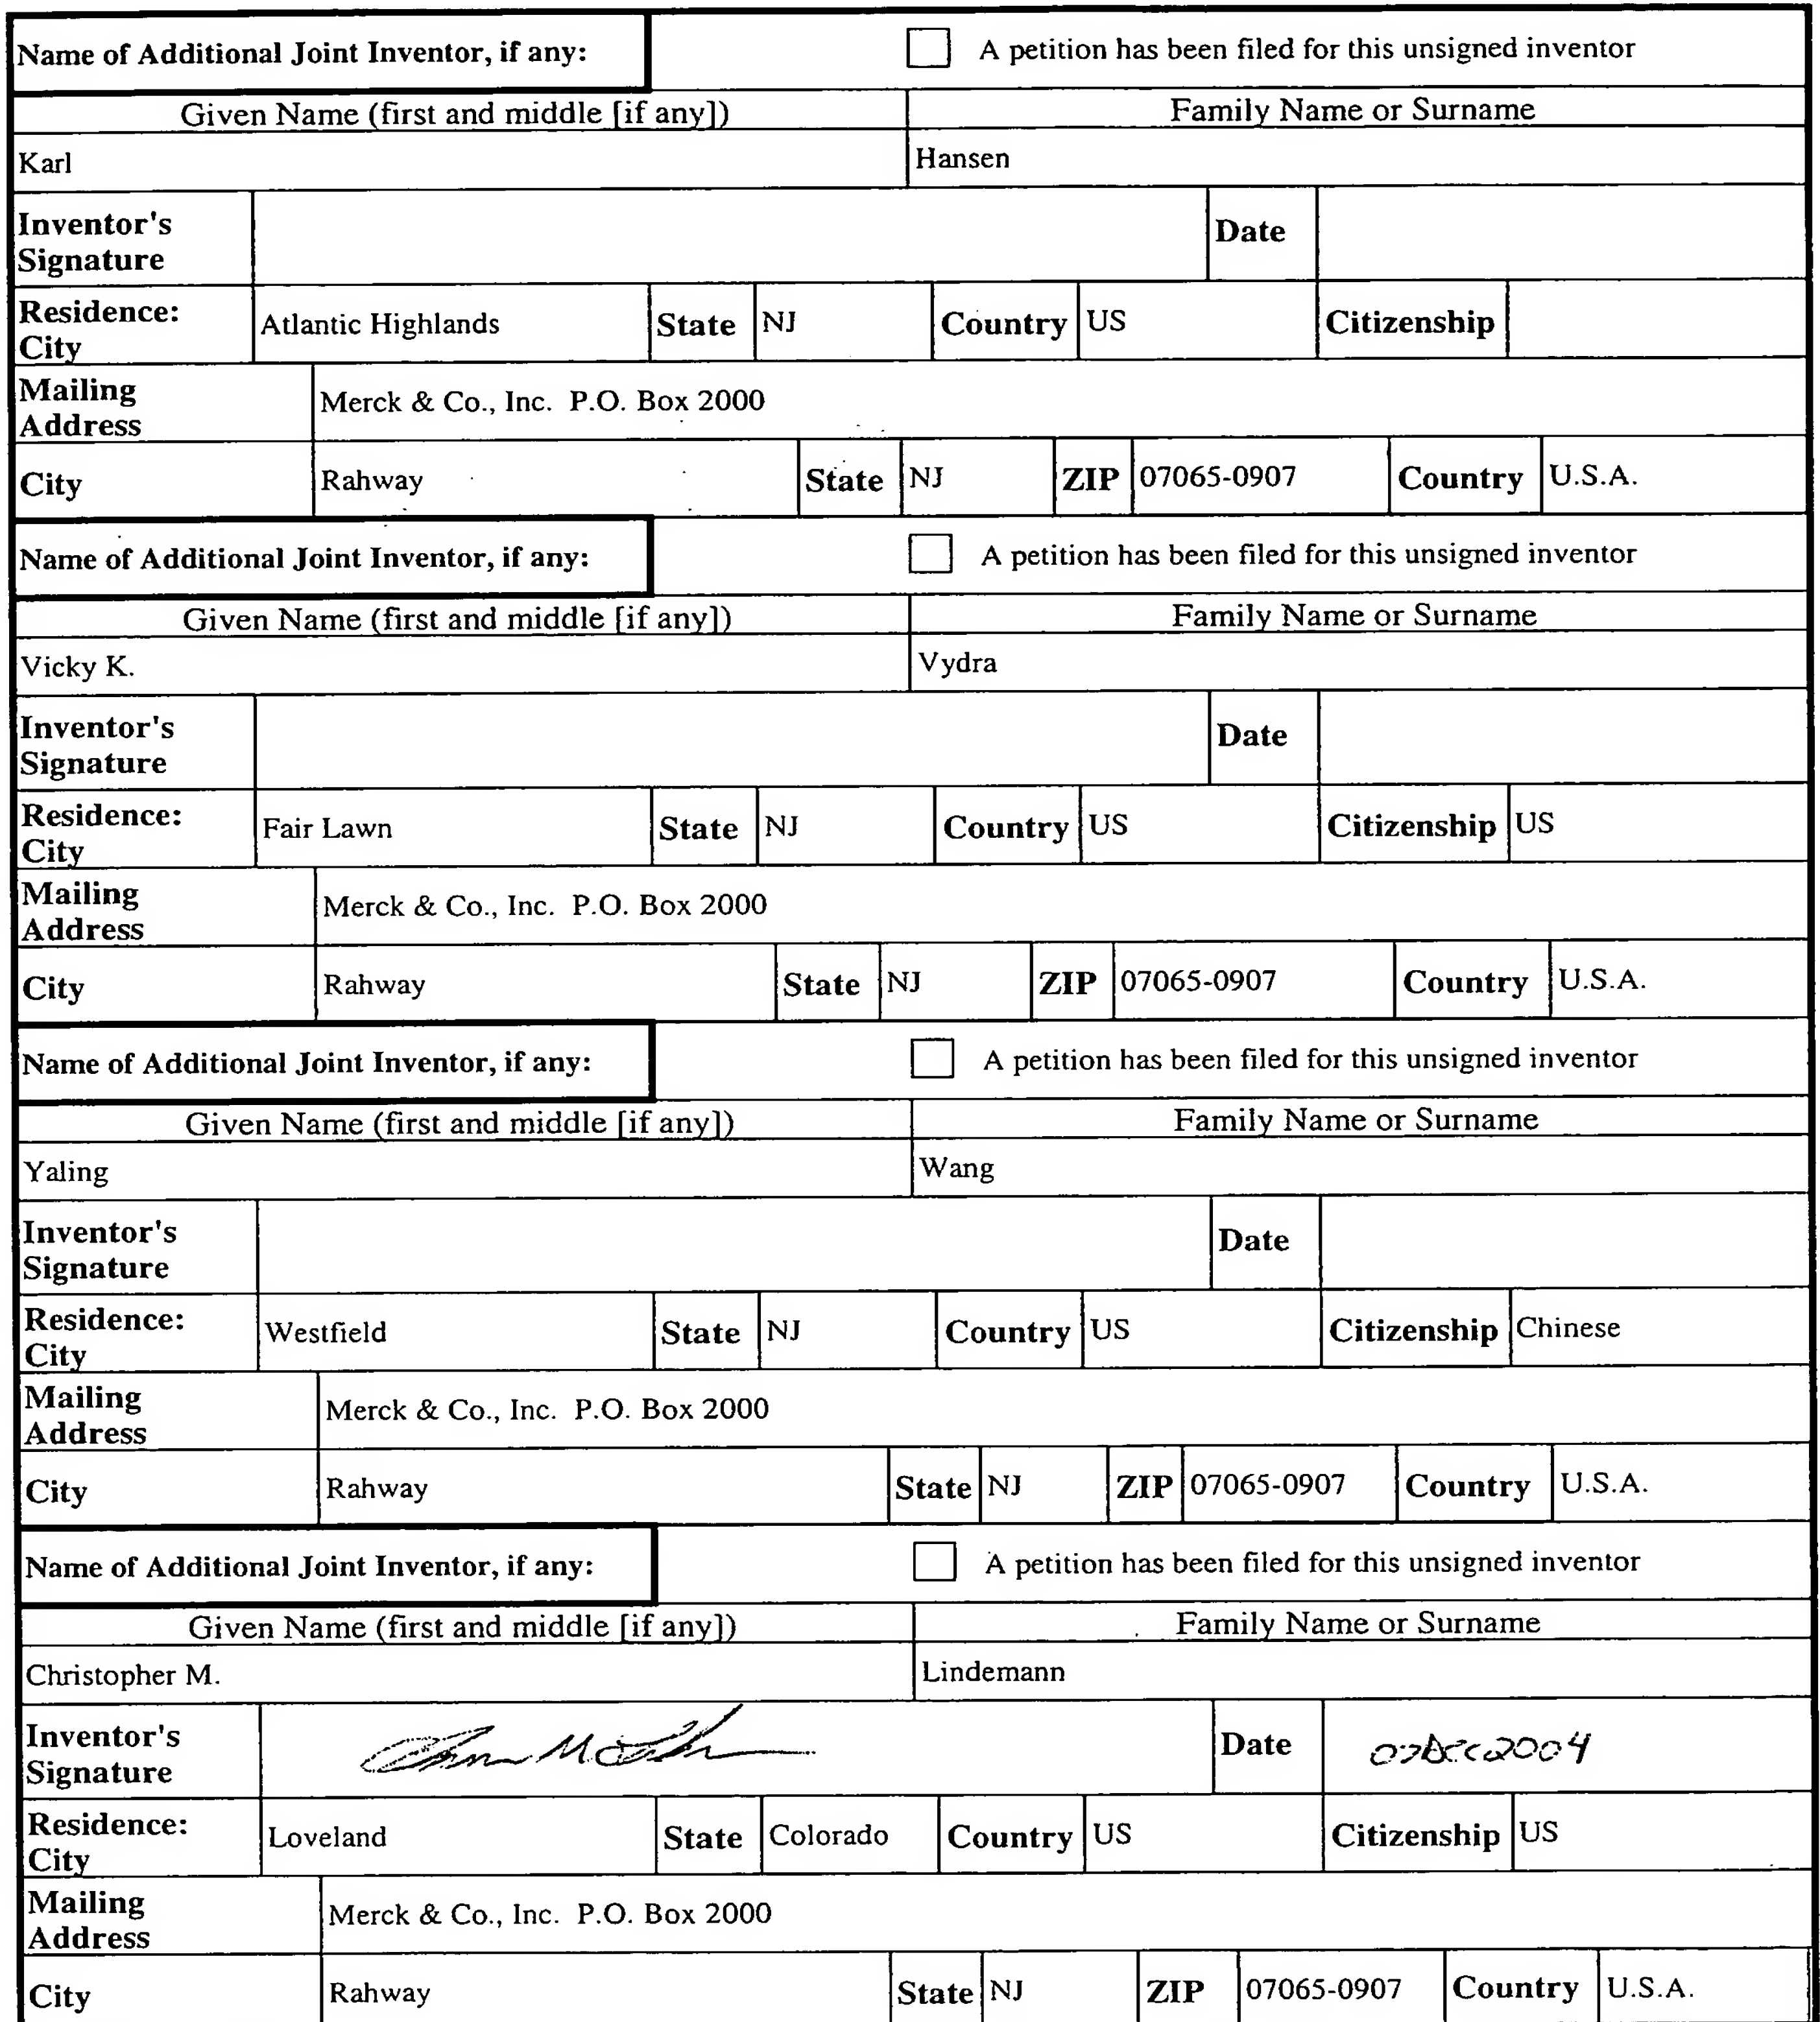 Name of Additional Joint Inventor, if any: A petition has been filed for this unsigned inventor
Given Name (first and middle [if any]) Family Name or Surname
Karl Hansen
Inventor's Signature Date
Residence: City Atlantic Highlands State NJ Country US Citizenship
Mailing Address Merck & Co., Inc. P.O. Box 2000
City Rahway State NJ ZIP 07065-0907 Country U.S.A.
Name of Additional Joint Inventor, if any: A petition has been filed for this unsigned inventor
Given Name (first and middle [if any]) Family Name or Surname
Vicky K. Vydra
Inventor's Signature Date
Residence: City Fair Lawn State NJ Country US Citizenship US
Mailing Address Merck & Co., Inc. P.O. Box 2000
City Rahway State NJ ZIP 07065-0907 Country U.S.A.
Name of Additional Joint Inventor, if any: A petition has been filed for this unsigned inventor
Given Name (first and middle [if any]) Family Name or Surname
Yaling Wang
Inventor's Signature Date
Residence: City Westfield State NJ Country US Citizenship Chinese
Mailing Address Merck & Co., Inc. P.O. Box 2000
City Rahway State NJ ZIP 07065-0907 Country U.S.A.
Name of Additional Joint Inventor, if any: A petition has been filed for this unsigned inventor
Given Name (first and middle [if any]) Family Name or Surname
Christopher M. Lindemann
Inventor's Signature Date 07DEC2004
Residence: City Loveland State Colorado Country US Citizenship US
Mailing Address Merck & Co., Inc. P.O. Box 2000
City Rahway State NJ ZIP 07065-0907 Country U.S.A.